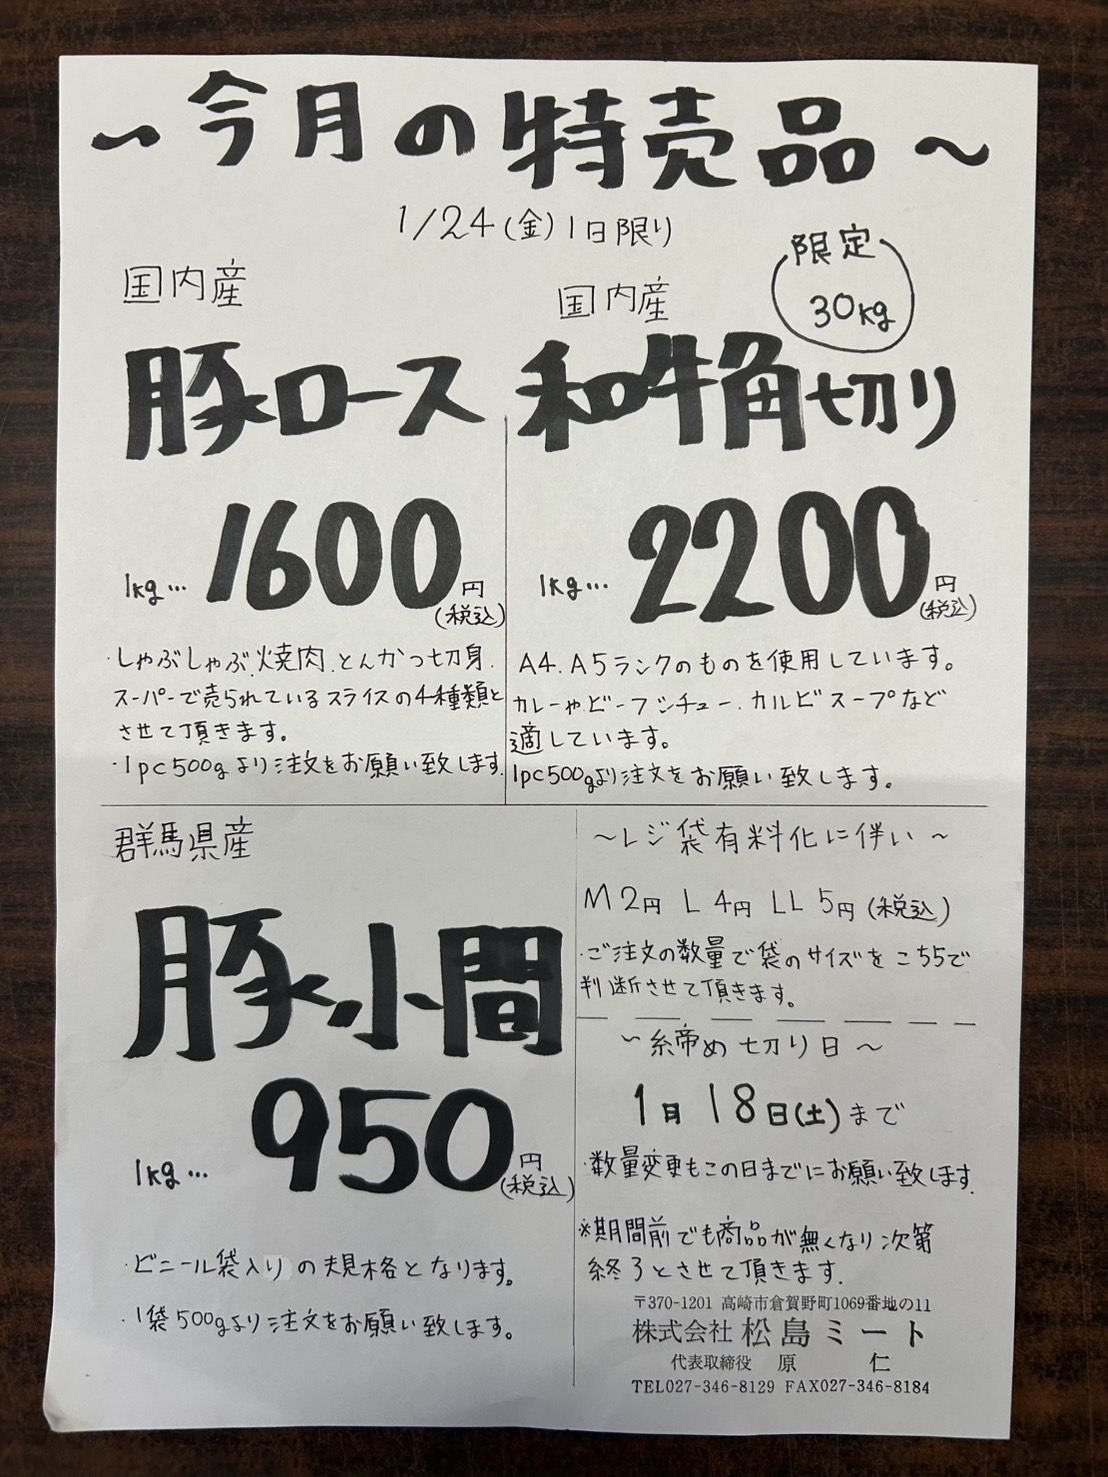 ～今月の特売品～
1/24(金)1日限り
国内産
豚ロース
1kg… 1600円(税込)
・しゃぶしゃぶ、焼肉、とんかつ切身、
スーパーで売られているスライスの4種類と
させて頂きます。
・1pc500gより注文をお願い致します。
限定
30kg
国内産
和牛角切り
1kg… 2200円(税込)
A4、A5ランクのものを使用しています。
カレーやビーフシチュー、カルビスープなど
適しています。
1pc500gより注文をお願い致します。
群馬県産
豚小間
1kg… 950円(税込)
・ビニール袋入りの規格となります。
・1袋500gより注文をお願い致します。
～レジ袋有料化に伴い～
M2円 L4円 LL5円(税込)
・ご注文の数量で袋のサイズをこちらで
判断させて頂きます。
～締め切り日～
1月18日(土)まで
・数量変更もこの日までにお願い致します。
※期間前でも商品が無くなり次第
終了とさせて頂きます。
〒370-1201 高崎市倉賀野町1069番地の11
株式会社 松島ミート
代表取締役 原 仁
TEL027-346-8129 FAX027-346-8184